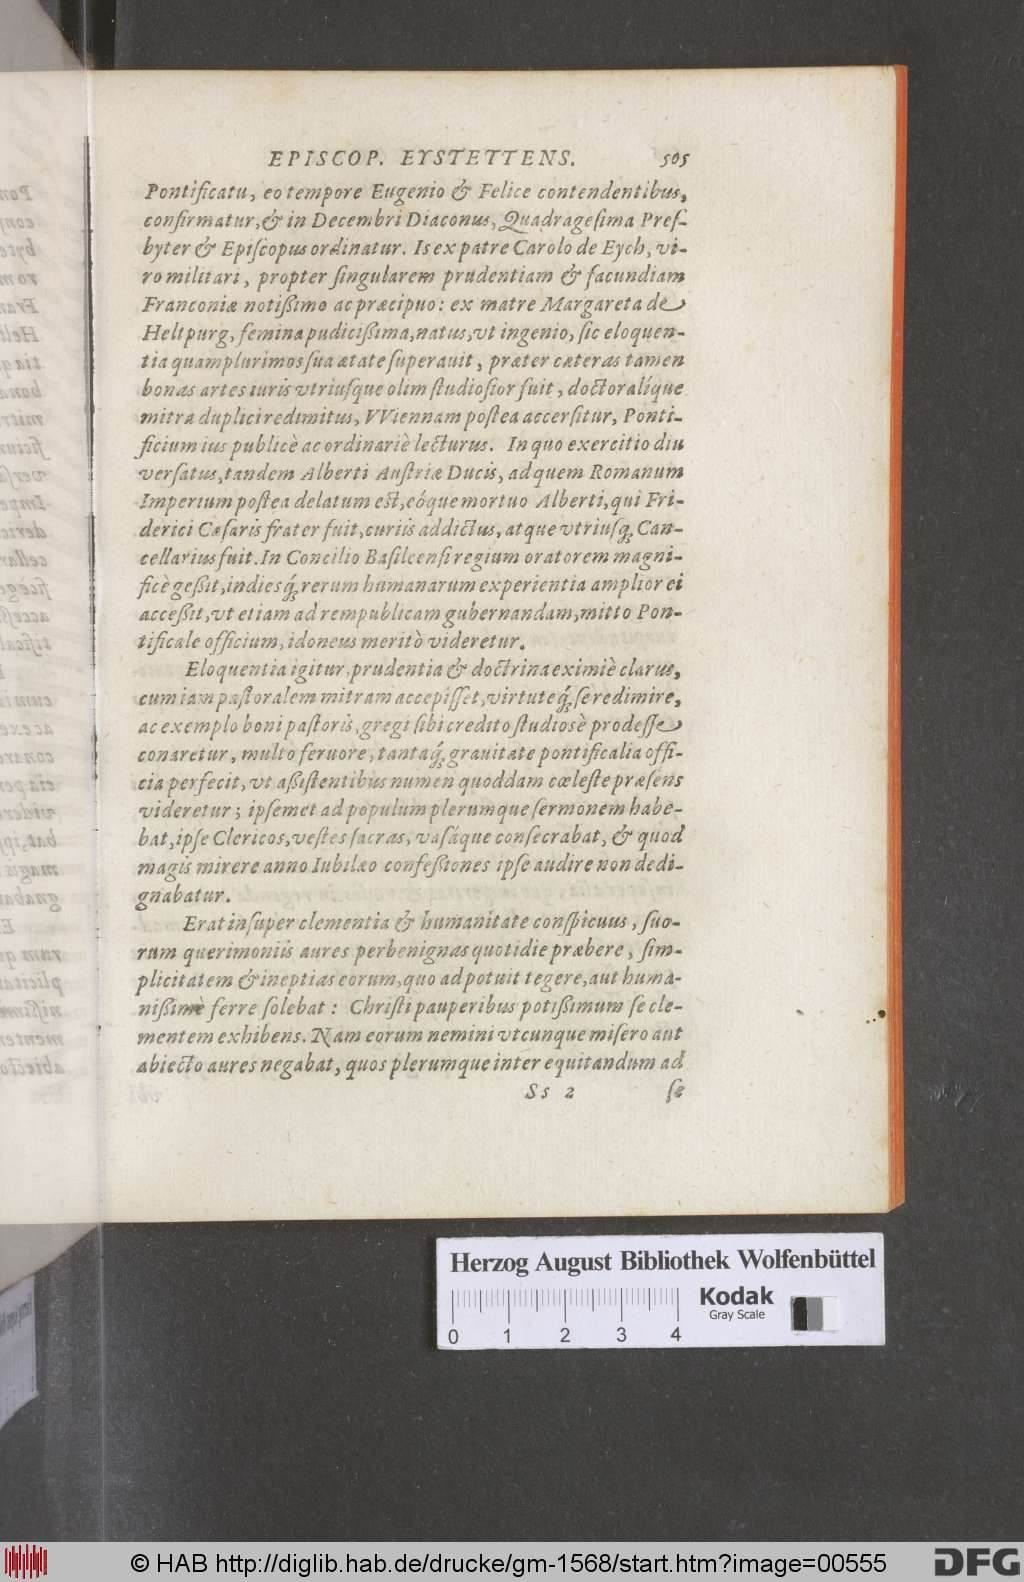 EPISCOP. EYSTETTENS. 505
Pontificatu, eo tempore Eugenio & Felice contendentibus,
confirmatur, & in Decembri Diaconus, Quadragesima Pres-
byter & Episcopus ordinatur. Is ex patre Carolo de Eych, vi-
ro militari, propter singularem prudentiam & facundiam
Franconiæ notißimo ac præcipuo: ex matre Margareta de
Heltpurg, femina pudicißima, natus, vt ingenio, sic eloquen-
tia quamplurimos sua ætate superauit, præter cæteras tamen
bonas artes iuris vtriusque olim studiosior fuit, doctoralíque
mitra duplici redimitus, VViennam postea accersitur, Ponti-
ficium ius publicè ac ordinariè lecturus. In quo exercitio diu
versatus, tandem Alberti Austriæ Ducis, ad quem Romanum
Imperium postea delatum est, eóque mortuo Alberti, qui Fri-
derici Cæsaris frater fuit, curiis addictus, atque vtriusq; Can-
cellarius fuit. In Concilio Basileensi regium oratorem magni-
ficè geßit, indiesq́; rerum humanarum experientia amplior ei
acceßit, vt etiam ad rempublicam gubernandam, mitto Pon-
tificale officium, idoneus meritò videretur.
Eloquentia igitur, prudentia & doctrina eximiè clarus,
cum iam pastoralem mitram accepisset, virtuteq́; se redimire,
ac exemplo boni pastoris, gregi sibi credito studiosè prodesse
conaretur, multo feruore, tantaq́; grauitate pontificalia offi-
cia perfecit, vt aßistentibus numen quoddam cœleste præsens
videretur; ipsemet ad populum plerumque sermonem habe-
bat, ipse Clericos, vestes sacras, vasáque consecrabat, & quod
magis mirere anno Iubilæo confeßiones ipse audire non dedi-
gnabatur.
Erat insuper clementia & humanitate conspicuus, suo-
rum querimoniis aures perbenignas quotidie præbere, sim-
plicitatem & ineptias eorum, quo ad potuit tegere, aut huma-
nißimè ferre solebat: Christi pauperibus potißimum se cle-
mentem exhibens. Nam eorum nemini vtcunque misero aut
abiecto aures negabat, quos plerumque inter equitandum ad
Ss 2 se
Herzog August Bibliothek Wolfenbüttel
Kodak
Gray Scale
0 1 2 3 4
© HAB http://diglib.hab.de/drucke/gm-1568/start.htm?image=00555
DFG